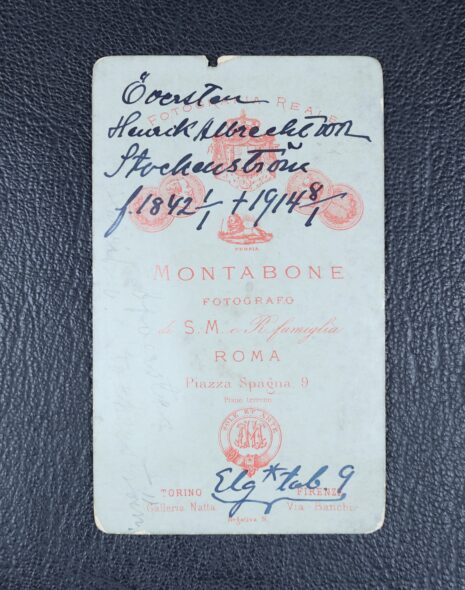 Översten
FOTOGRAFIA REALE
Henrik Albrecht von
Stockenström
f. 1842 1/1 + 1914 8/1
MONTABONE
FOTOGRAFO
di S. M. e R. famiglia
ROMA
Piazza Spagna, 9
Piano terreno
SOLE ET ARTE
Elg* tab. 9
TORINO FIRENZE
Galleria Natta Via Banchi
Negativa N.